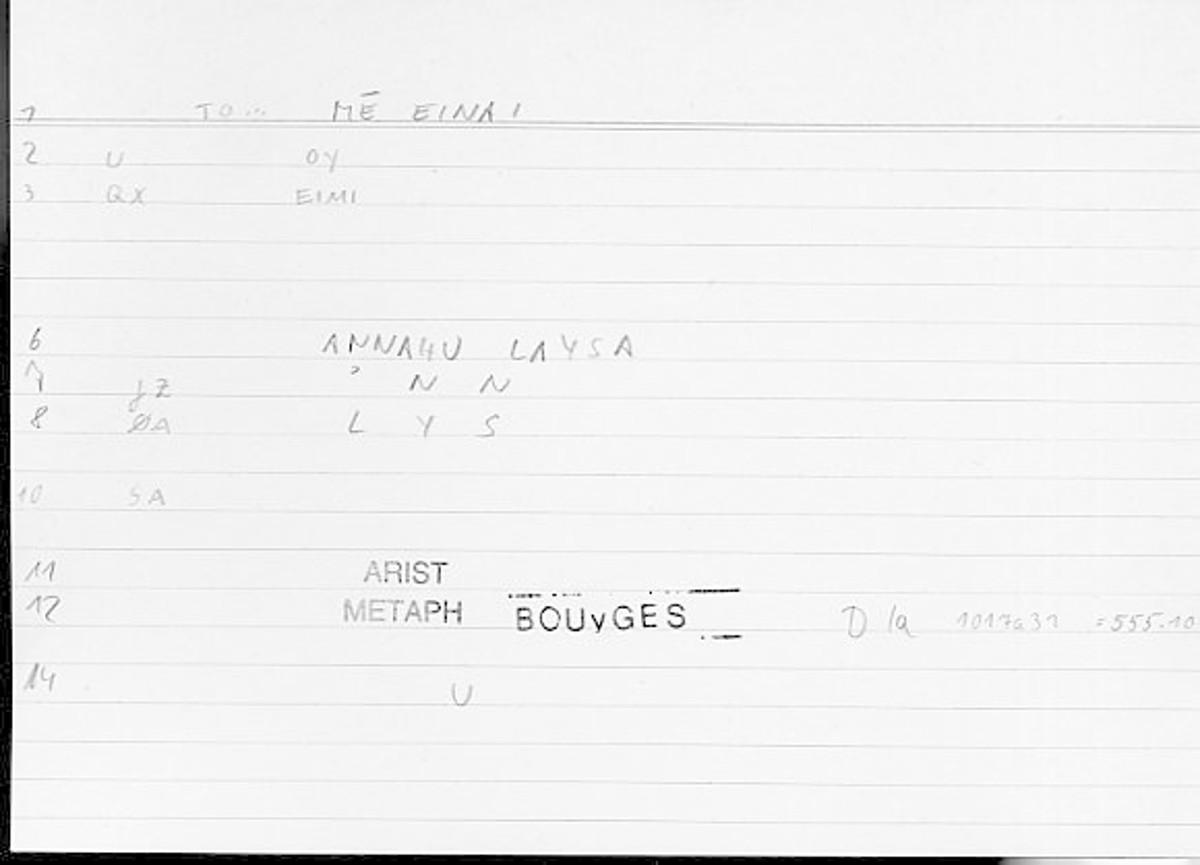 1 TO... MĒ EINAI
2 U OY
3 QX EIMI
6 ANNAHU LAYSA
7 JZ ' N N
8 ØA L Y S
10 SA
11 ARIST
12 METAPH BOUyGES D 1a 1017a31 =555.10
14 U